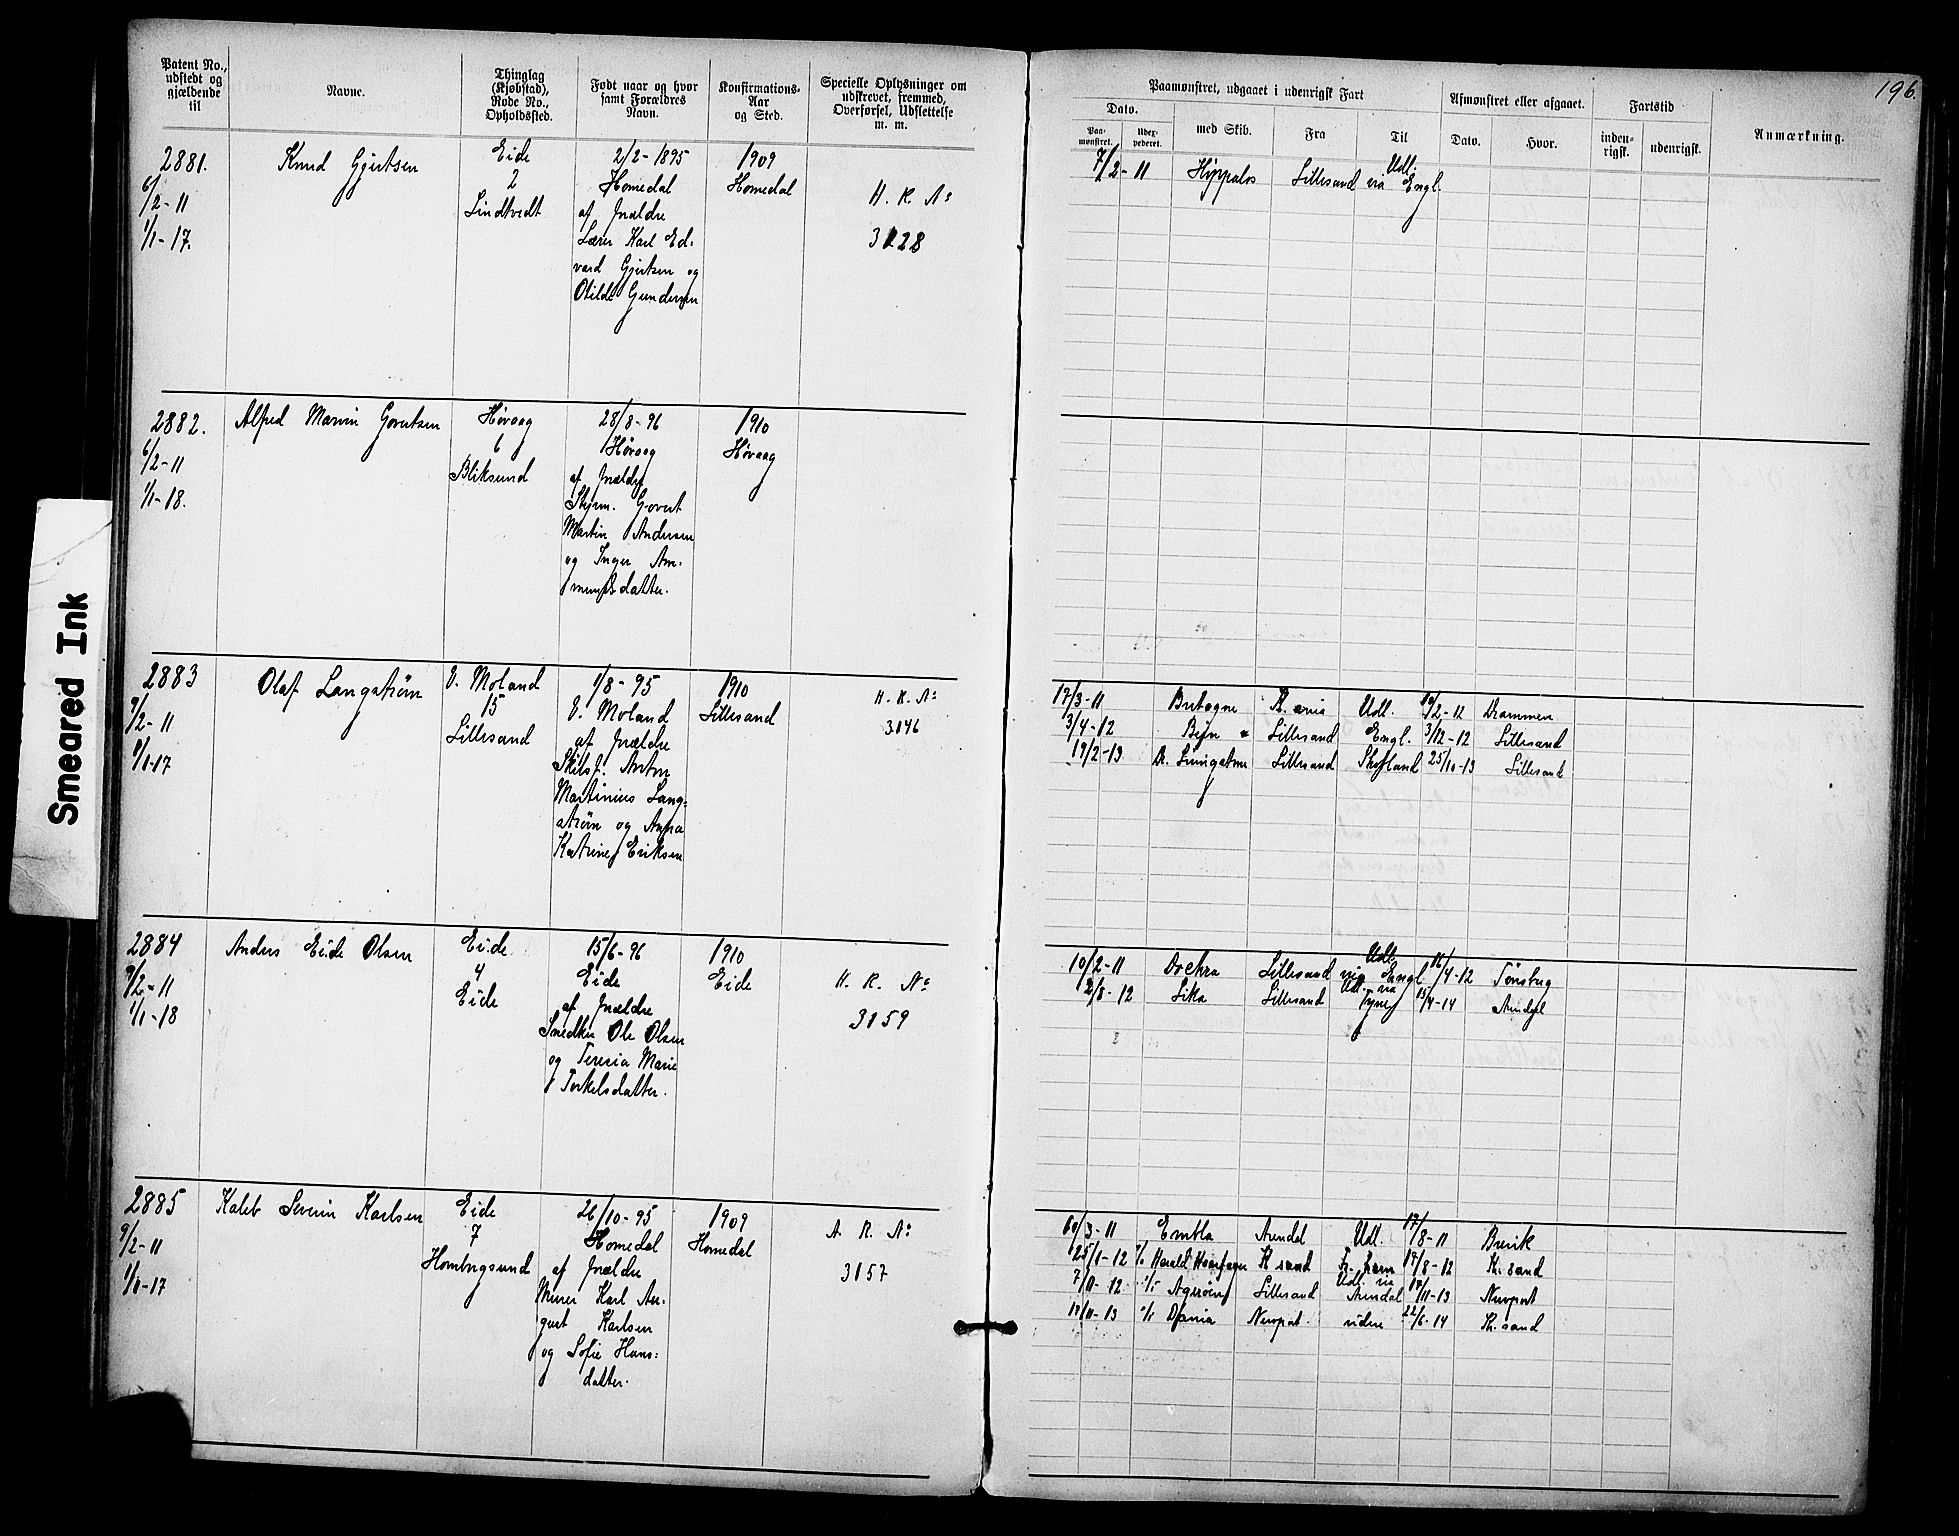 Smeared Ink
196.
Patent No., udstedt og gjældende til
Navne.
Thinglag (Kjøbstad), Rode No., Opholdssted.
Født naar og hvor samt Forældres Navn.
Konfirmations-Aar og Sted.
Specielle Oplysninger om udskrevet, fremmed, Overførsel, Udslettelse m. m.
Paamønstret, udgaaet i udenrigsk Fart
Dato.
Paa-mønstret.
Udex-pederet.
med Skib.
Fra
Til
Afmønstret eller afgaaet.
Dato.
Hvor.
Fartstid
inden-rigsk.
udenrigsk.
Anmærkning.
2881.
6/2-11
1/1-17.
Knud Gjertsen
Eide
2
Lindtvedt
2/2-1895
Homedal
af Forældre
Lærer Karl Ed-
vard Gjertsen og
Otilde Gundersen
1909
Homedal
H. R. No
3128
7/2-11 Hippalos Lillesand via Udl. Engl.
2882.
6/2-11
1/1-18.
Alfred Marvin Govertsen
Høvaag
6
Bliksund
28/8-96
Høvaag
af Forældre
Styrm. Govert
Martin Andersen
og Inger Am-
mundsdatter.
1910
Høvaag
2883
9/2-11
1/1-17
Olaf Langstrøm
V. Moland
15
Lillesand
1/8-95
V. Moland
af Forældre
Skibsf. Anton
Martinius Lang-
strøm og Anna
Katrine Eriksen
1910
Lillesand
H. R. No
3146
17/3-11 Bretagne K. ania Udl. 19/2-12 Drammen
3/4-12 Bijn Lillesand Engl. 3/12-12 Lillesand
19/2-13 Dr. Livingstone Lillesand Skotland 25/10-13 Lillesand
2884
9/2-11
1/1-18
Anders Eide Olsen
Eide
4
Eide
15/6-96
Eide
af Forældre
Snedker Ole Olsen
og Teresia Marie
Torkelsdatter.
1910
Eide
H. R. No
3159
10/2-11 Lillesand via Udl. Engl 16/4-12 Tønsberg
2/8-12 Sika Lillesand Udl. via Tyne 15/4-14 Arendal
2885
9/2-11
1/1-17
Kaleb Severin Karlsen
Eide
7
Homborgsund
26/10-95
Homedal
af Forældre
Murer Karl Au-
gust Karlsen
og Sofie Hans-
datter.
1909
Homedal
A. R. No
3157
/3-11 Embla Arendal Udl. 17/8-11 Brevik
25/1-12 Harald Haarfager K sand 17/8-12 Kr. sand
7/11-12 Agerøen Lillesand Udl. via Arendal /11-13 Newport
/11-13 Dania Newport videre 22/6-14 Kr. sand